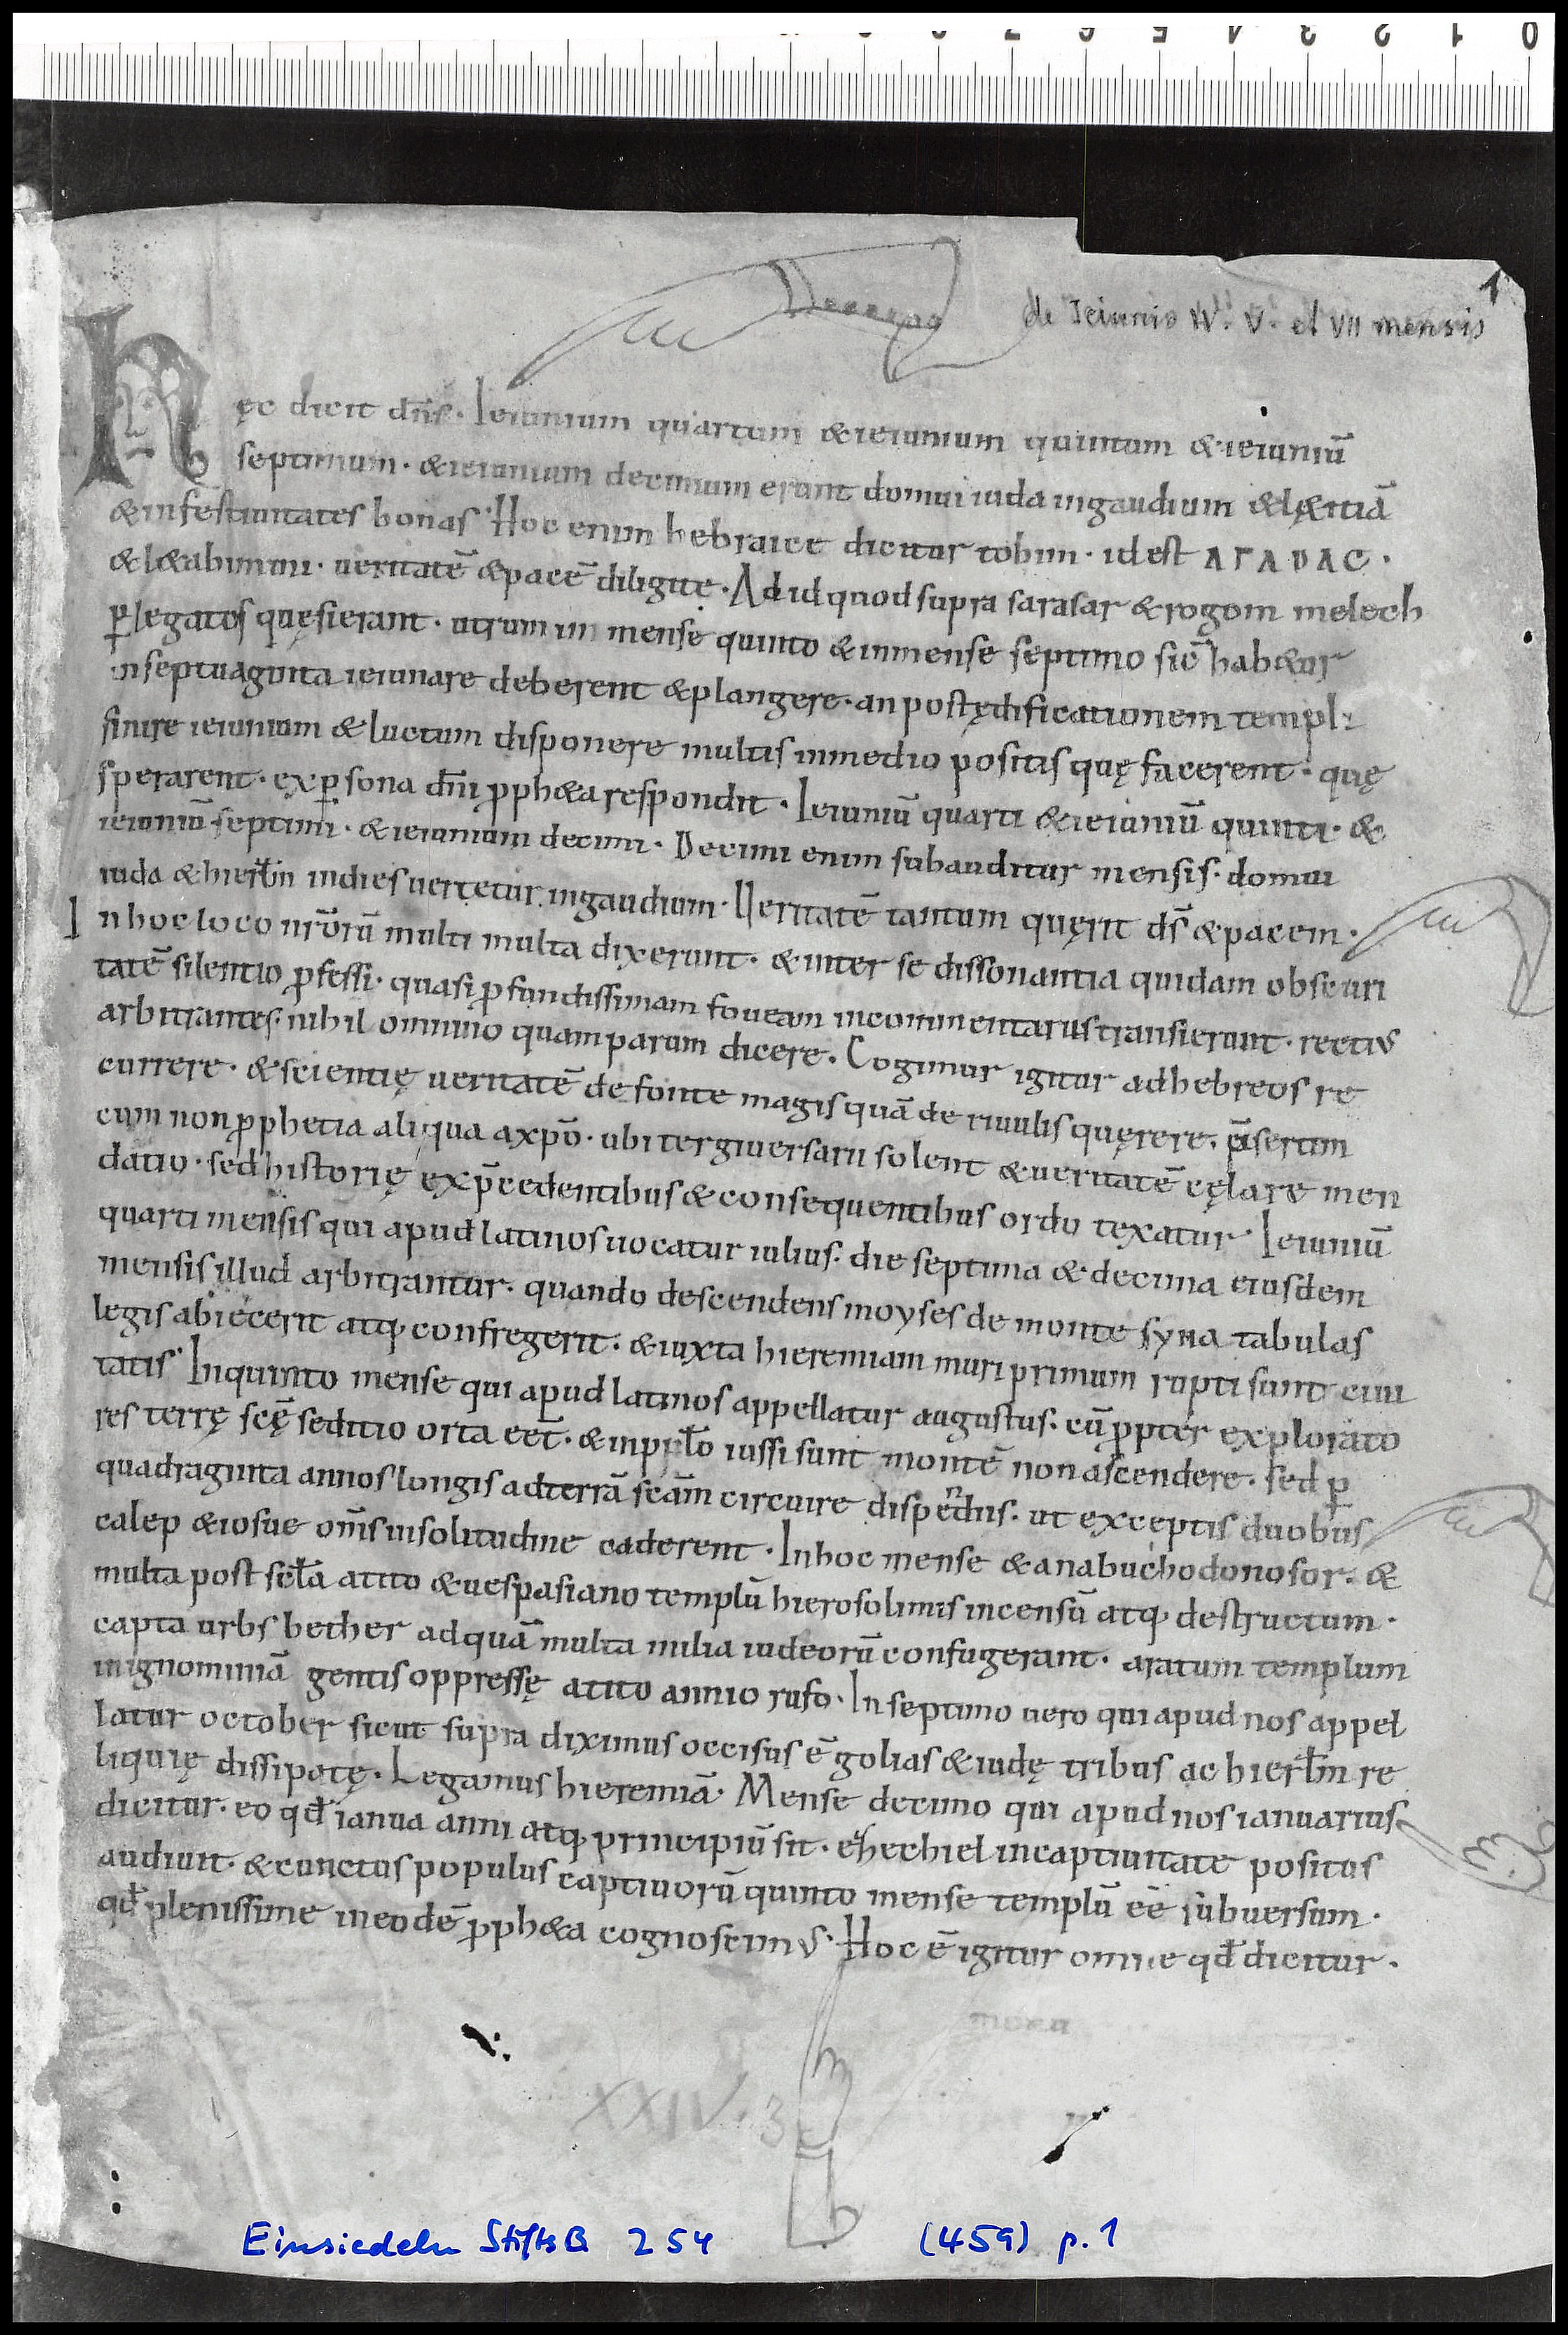 0 1 2 3 4 5 6 7 8
1
de Ieiunio IV. V. et VII mensis
Hęc dicit dñs · Ieiunium quartum & ieiunium quintum & ieiuniū
septimum · & ieiunium decimum erunt domui iuda in gaudium & lętitiā
& in festiuitates bonas · Hoc enim hebraice dicitur tobim · id est ΑΓΑΘΑC ·
& lætabimini · ueritatē & pacē diligite · Ad id quod supra sarasar & rogom melech
ꝑ legatos quęsierant · utrum in mense quinto & in mense septimo sic̄ habetur
in septuaginta ieiunare deberent & plangere · an post ędificationem templi
finire ieiunium & luctum disponere multis in medio positis quę facerent · quę
sperarent · ex ꝑsona dñi ꝓph&a respondit · Ieiuniū quarti & ieiuniū quinti · &
ieiuniū septimi · & ieiunium decimi · Decimi enim subauditur mensis · domui
iuda & hierl̄m in dies uertetur in gaudium · Ueritatē tantum quęrit ds̄ & pacem ·
In hoc loco nr̄orū multi multa dixerunt · & inter se dissonantia quidam obscuri
tatē silentio ꝓfessi · quasi ꝓfundissimam foueam in commentariis transierunt · rectius
arbitrantes · nihil omnino quam parum dicere · Cogimur igitur ad hebreos re
currere · & scientię ueritatē de fonte magis quā de riuulis quęrere · p̄sertim
cum non ꝓphetia aliqua a xp̄o · ubi tergiuersari solent & ueritatē cęlare men
datio · sed historię ex p̄cedentibus & consequentibus ordo texatur · Ieiuniū
quarti mensis qui apud latinos uocatur iulius · die septima & decima eiusdem
mensis illud arbitrantur · quando descendens moyses de monte syna tabulas
legis abiecerit atq; confregerit · & iuxta hieremiam muri primum rupti sunt ciui
tatis · In quinto mense qui apud latinos appellatur augustus · cū ꝓpter explorato
res terrę scę̄ seditio orta eēt · & in ppl̄o iussi sunt montē non ascendere · sed ꝑ
quadraginta annos longis ad terrā scām circuire dispendiis · ut exceptis duobus
calep & iosue om̄s in solitudine caderent · In hoc mense & a nabuchodonosor · &
multa post scl̄a a tito & uespasiano templū hierosolimis incensū atq; destructum ·
capta urbs bether ad quā multa milia iudeorū confugerant · aratum templum
in ignominiā gentis oppressę a tito annio rufo · In septimo uero qui apud nos appel
latur october sicut supra diximus occisus ē golias & iudę tribus ac hierl̄m re
liquię dissipatę · Legamus hieremiā · Mense decimo qui apud nos ianuarius
dicitur · eo qd̄ ianua anni atq; principiū sit · ezechiel in captiuitate positus
audiuit · & cunctus populus captiuorū quinto mense templū eē subuersum ·
qd̄ plenissime in eodē ꝓph&a cognoscimus · Hoc ē igitur omne qd̄ dicitur ·
XXIV. 3
Einsiedeln StiftsB 254 (459) p. 1